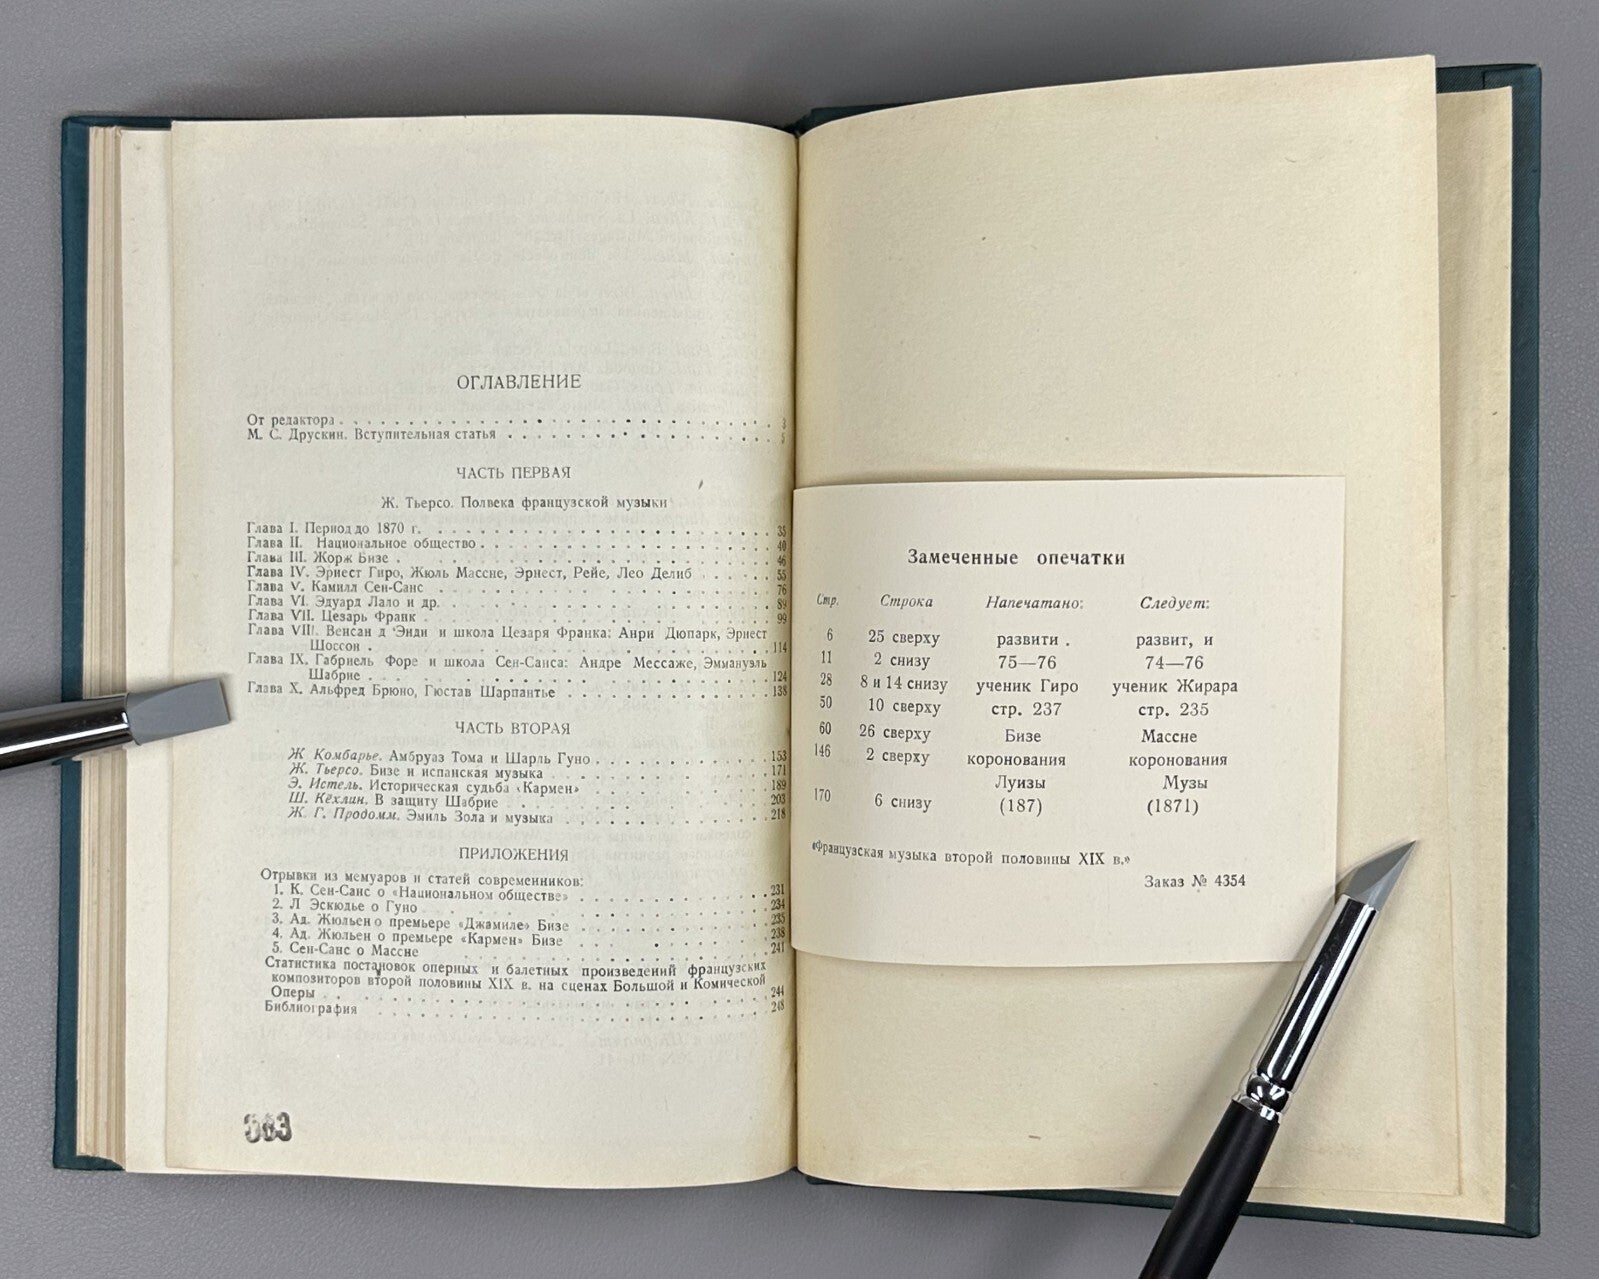 ОГЛАВЛЕНИЕ
От редактора . . . . . . . . . . . . . . . . . . . . . . . . . 3
М. С. Друскин. Вступительная статья . . . . . . . . . . . . . . . 5
ЧАСТЬ ПЕРВАЯ
Ж. Тьерсо. Полвека французской музыки
Глава I. Период до 1870 г. . . . . . . . . . . . . . . . . . . . 35
Глава II. Национальное общество . . . . . . . . . . . . . . . . . 40
Глава III. Жорж Бизе . . . . . . . . . . . . . . . . . . . . . . 46
Глава IV. Эрнест Гиро, Жюль Массне, Эрнест, Рейе, Лео Делиб . . . . . 55
Глава V. Камилл Сен-Санс . . . . . . . . . . . . . . . . . . . . 76
Глава VI. Эдуард Лало и др. . . . . . . . . . . . . . . . . . . . 89
Глава VII. Цезарь Франк . . . . . . . . . . . . . . . . . . . . . 99
Глава VIII. Венсан д'Энди и школа Цезаря Франка: Анри Дюпарк, Эрнест
Шоссон . . . . . . . . . . . . . . . . . . . . . . . . . 114
Глава IX. Габриель Форе и школа Сен-Санса: Андре Мессаже, Эммануэль
Шабрие . . . . . . . . . . . . . . . . . . . . . . . . . 124
Глава X. Альфред Брюно, Гюстав Шарпантье . . . . . . . . . . . . . 138
ЧАСТЬ ВТОРАЯ
Ж Комбарье. Амбруаз Тома и Шарль Гуно . . . . . . . . . . . . . . 153
Ж. Тьерсо. Бизе и испанская музыка . . . . . . . . . . . . . . . 171
Э. Истель. Историческая судьба «Кармен» . . . . . . . . . . . . . 189
Ш. Кёхлин. В защиту Шабрие . . . . . . . . . . . . . . . . . . . 203
Ж. Г. Продомм. Эмиль Зола и музыка . . . . . . . . . . . . . . . 218
ПРИЛОЖЕНИЯ
Отрывки из мемуаров и статей современников:
1. К. Сен-Санс о «Национальном обществе» . . . . . . . . . . . . . 231
2. Л Эскюдье о Гуно . . . . . . . . . . . . . . . . . . . . . . 234
3. Ад. Жюльен о премьере «Джамиле» Бизе . . . . . . . . . . . . . 235
4. Ад. Жюльен о премьере «Кармен» Бизе . . . . . . . . . . . . . 238
5. Сен-Санс о Массне . . . . . . . . . . . . . . . . . . . . . . 241
Статистика постановок оперных и балетных произведений французских
композиторов второй половины XIX в. на сценах Большой и Комической
Оперы . . . . . . . . . . . . . . . . . . . . . . . . . . 244
Библиография . . . . . . . . . . . . . . . . . . . . . . . . . 248
Замеченные опечатки
Стр. Строка Напечатано: Следует:
6 25 сверху развити . развит, и
11 2 снизу 75—76 74—76
28 8 и 14 снизу ученик Гиро ученик Жирара
50 10 сверху стр. 237 стр. 235
60 26 сверху Бизе Массне
146 2 сверху коронования коронования
Луизы Музы
170 6 снизу (187) (1871)
«Французская музыка второй половины XIX в.»
Заказ № 4354